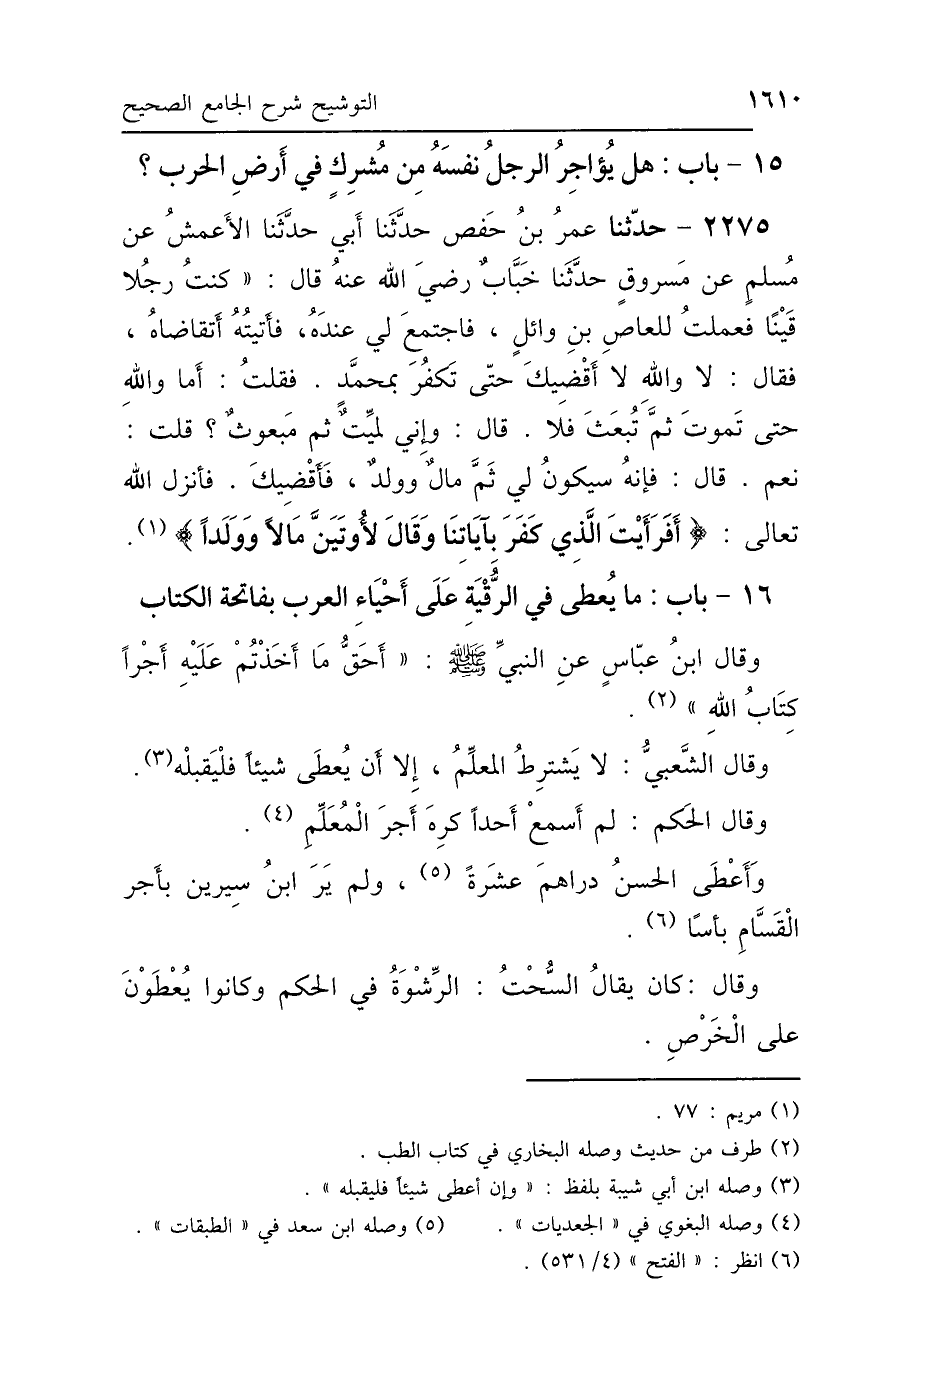 ١٦١٠ التوشيح شرح الجامع الصحيح
١٥ - باب : هل يُؤاجِرُ الرجلُ نفسَهُ مِن مُشرِكٍ في أَرضِ الحرب ؟
٢٢٧٥ - حدّثنا عمرُ بنُ حَفص حدَّثَنا أَبي حدَّثَنا الأَعمشُ عن
مُسلمٍ عن مَسروقٍ حدَّثَنا خَبَّابٌ رضيَ الله عنهُ قال : « كنتُ رجُلا
قَيْنًا فعملتُ للعاصِ بنِ وائلٍ ، فاجتمعَ لي عندَهُ، فأَتيتُهُ أَتقاضاهُ ،
فقال : لا واللهِ لا أَقْضيكَ حتّى تَكفُرَ بمحمَّدٍ . فقلتُ : أَما واللهِ
حتى تَموتَ ثمَّ تُبعَثَ فلا . قال : وإني لميِّتٌ ثم مَبعوثٌ ؟ قلت :
نعم . قال : فإنهُ سيكونُ لي ثَمَّ مالٌ وولدٌ ، فَأَقْضيكَ . فأنزل الله
تعالى : ﴿ أَفَرَأَيْتَ الَّذِي كَفَرَ بِآيَاتِنَا وَقَالَ لأُوتَيَنَّ مَالاً وَوَلَداً ﴾ (١).
١٦ - باب : ما يُعطى في الرُّقْيَةِ عَلَى أَحْيَاءِ العرب بفاتحة الكتاب
وقال ابنُ عبّاسٍ عنِ النبيِّ ﷺ : « أَحَقُّ مَا أَخَذْتُمْ عَلَيْهِ أَجْراً
كِتَابُ اللهِ » (٢) .
وقال الشَّعبيُّ : لا يَشترِطُ المعلِّمُ ، إِلا أَن يُعطَى شيئاً فلْيَقبلْه(٣).
وقال الحَكم : لم أَسمعْ أَحداً كرِهَ أَجرَ الْمُعَلِّمِ (٤) .
وَأَعْطَى الحسنُ دراهمَ عشرَةً (٥) ، ولم يَرَ ابنُ سِيرين بأَجر
الْقَسَّامِ بأسًا (٦) .
وقال :كان يقالُ السُّحْتُ : الرِّشْوَةُ في الحكم وكانوا يُعْطَوْنَ
على الْخَرْصِ .
(١) مريم : ٧٧ .
(٢) طرف من حديث وصله البخاري في كتاب الطب .
(٣) وصله ابن أبي شيبة بلفظ : « وإن أعطى شيئاً فليقبله » .
(٤) وصله البغوي في « الجعديات » . (٥) وصله ابن سعد في « الطبقات » .
(٦) انظر : « الفتح » (٤/ ٥٣١) .